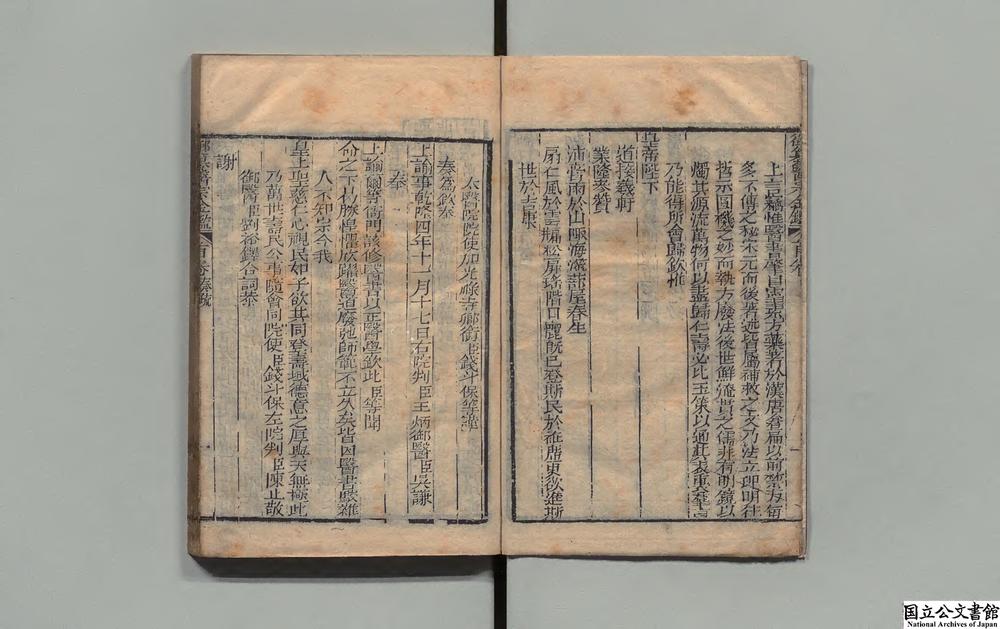 御纂醫宗金鑑 首卷
上言竊惟醫書肇自靈素方藥著於漢唐倉扁以前禁方每
多不傳之秘宋元而後著述皆屬補救之文乃法立即明往
哲示圓機之妙而執方廢法後世鮮流貫之儒非有明鏡以
燭其源流萬物何以盡歸仁壽必比玉策以通其表裏羣言
乃能得所會歸欽惟
皇帝陛下
道接羲軒
業隆參贊
沛膏雨於山陬海澨蔀屋春生
扇仁風於雲牖松屏瑤階日麗旣已登斯民於更欲進斯
世於吉康
太醫院院使加光祿寺卿銜臣錢斗保等謹
奏為欽奉
上諭事乾隆四年十一月十七日右院判臣王炳御醫臣吳謙
奉
上諭爾等衙門該修醫書以正醫學欽此臣等聞
命之下惶懼欣躍醫道廢弛師範不立久矣皆因醫書駁雜
人不知宗今我
皇上聖慈仁心視民如子欲其同登壽域德意之厚與天無極此
乃萬世壽民公事隨會同院使臣錢斗保左院判臣陳止敬
御醫臣劉裕鐸合詞恭
謝
御纂醫宗金鑑 首卷 奏疏
国立公文書館
National Archives of Japan